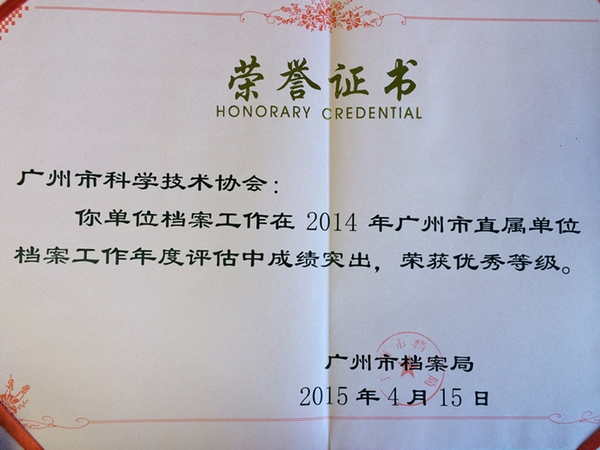 荣誉证书
HONORARY CREDENTIAL
广州市科学技术协会：
你单位档案工作在 2014 年广州市直属单位
档案工作年度评估中成绩突出，荣获优秀等级。
广州市档案局
2015 年 4 月 15 日